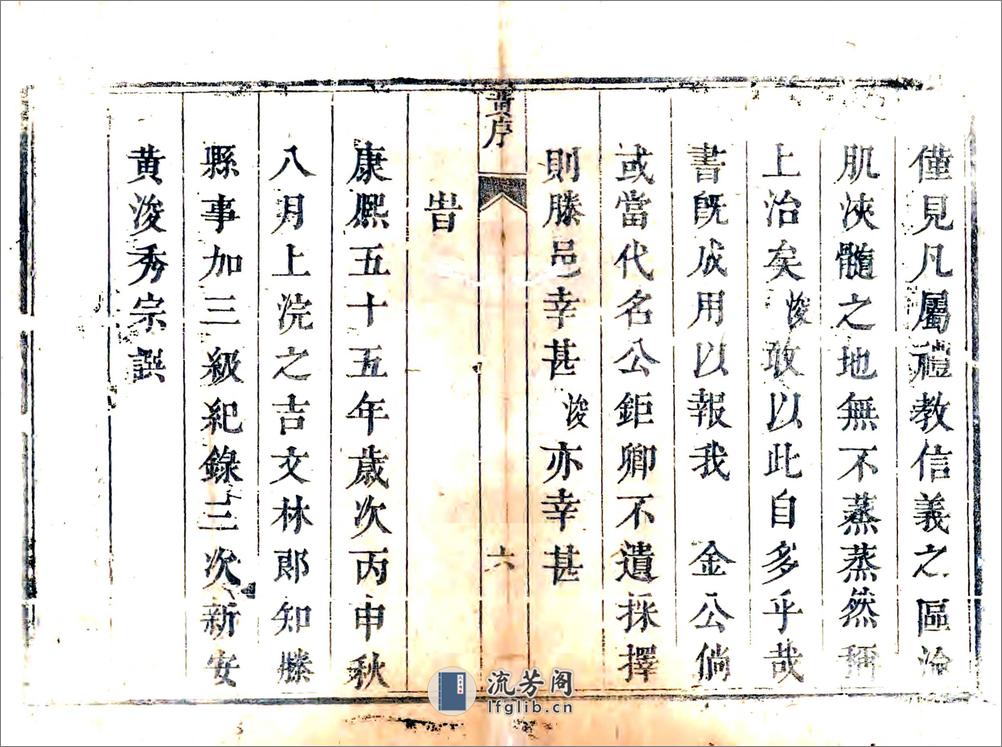 僅見凡屬禮教信義之區淪
肌浹髓之地無不蒸蒸然稱
上治矣浚敢以此自多乎哉
書旣成用以報我 金公倘
或當代名公鉅卿不遺採擇
則滕邑幸甚浚亦幸甚
黃序
六
旹
康熙五十五年歲次丙申秋
八月上浣之吉文林郎知滕
縣事加三級紀錄三次新安
黃浚秀宗譔
流芳阁
lfglib.cn